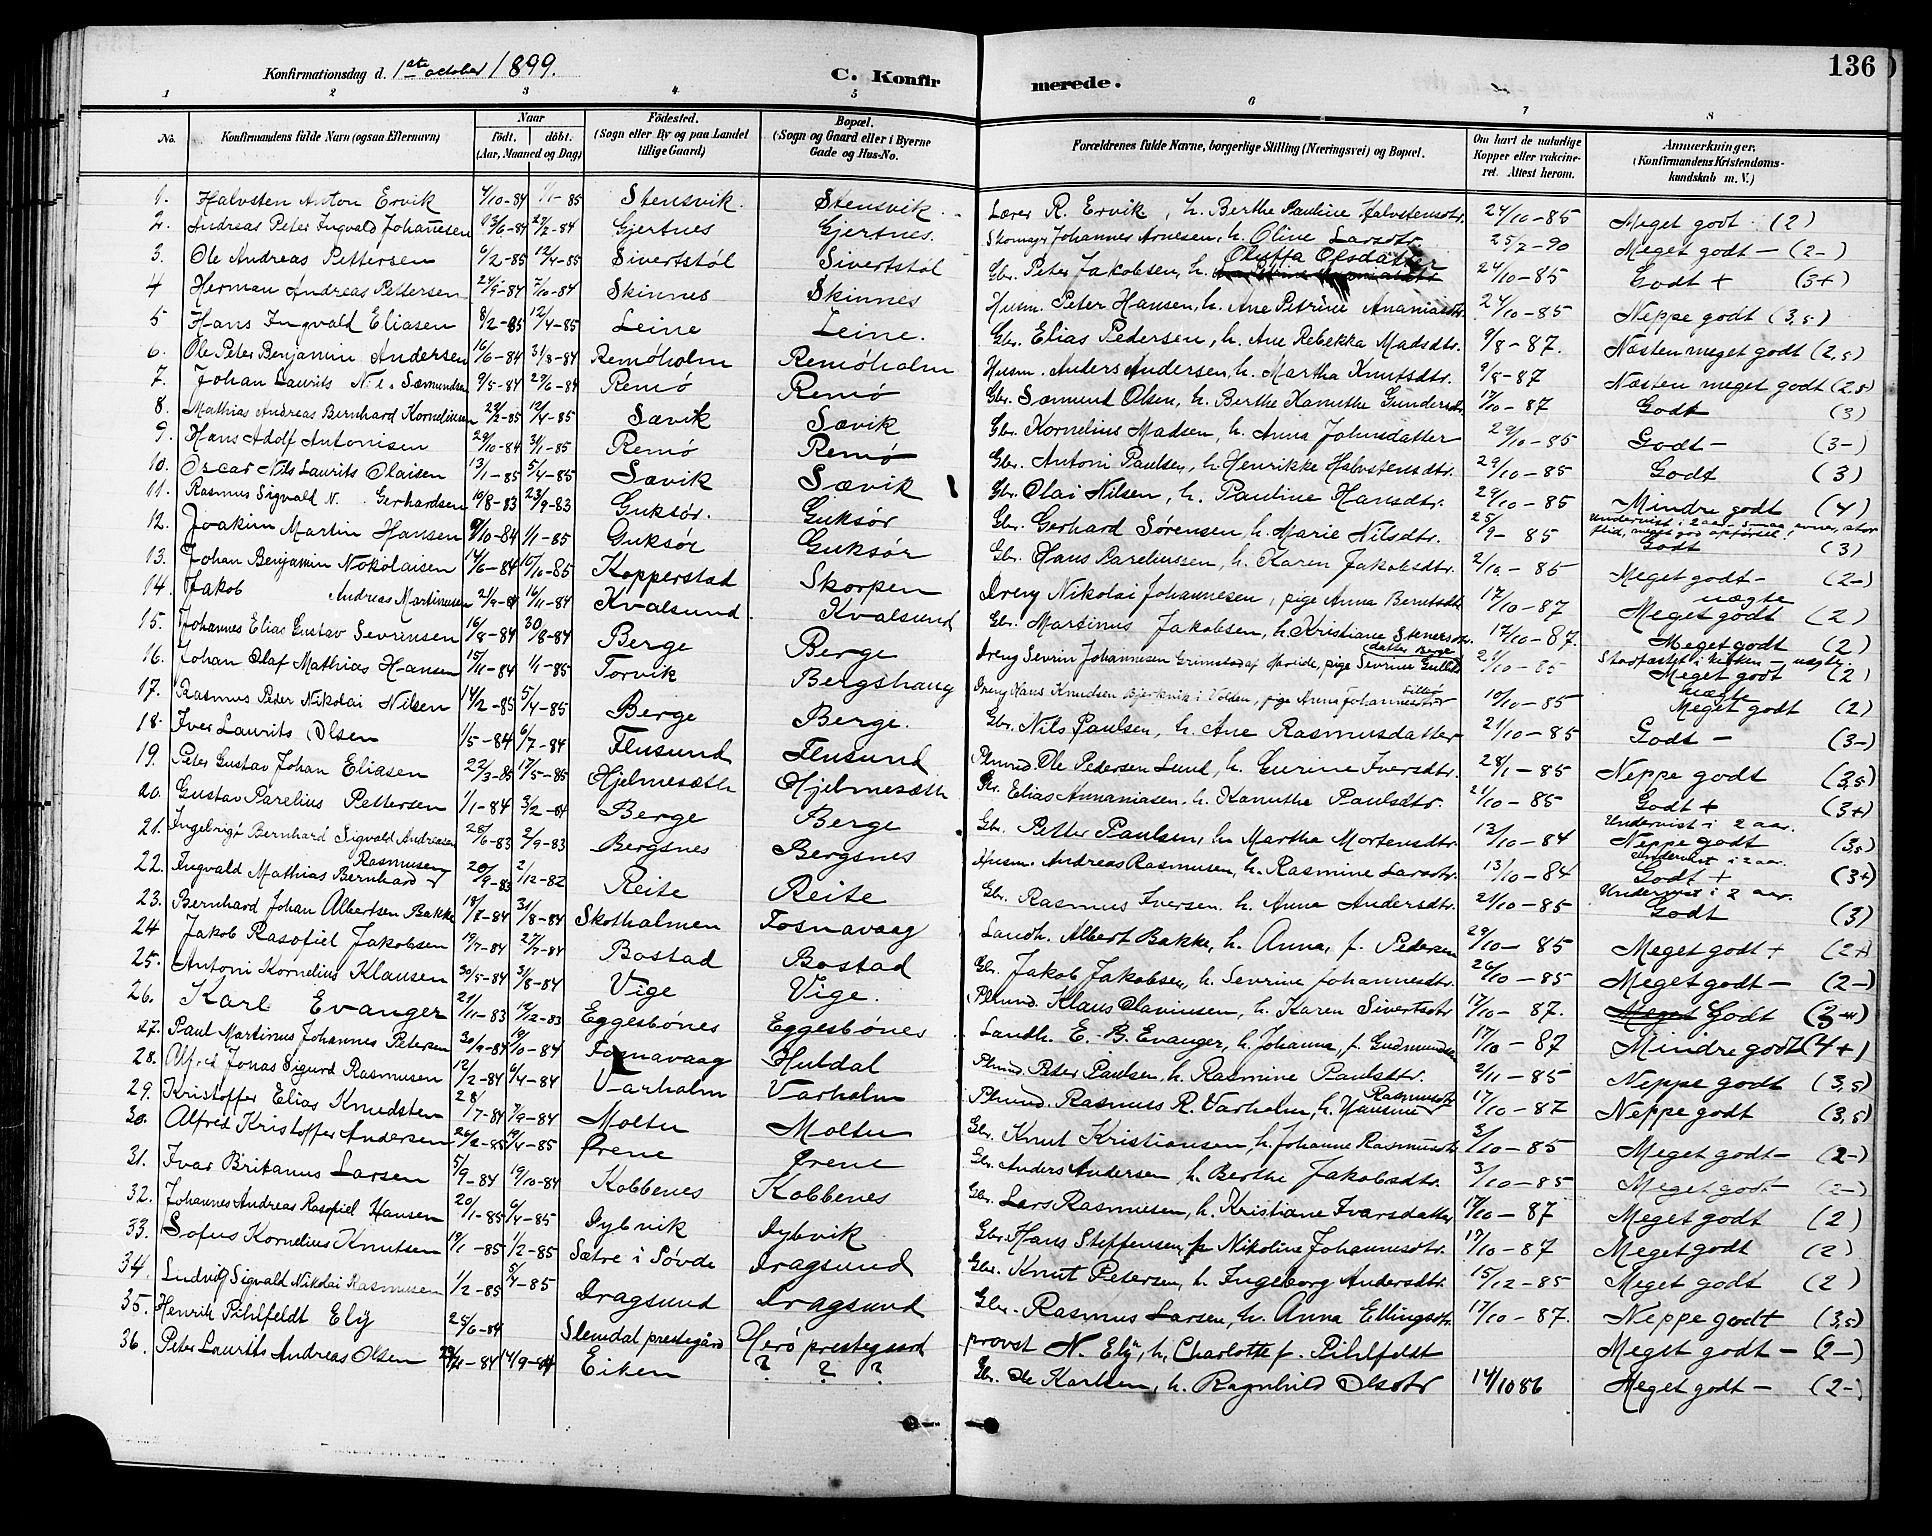 136
Konfirmationsdag d. 1ste october 1899.
C. Konfirmerede.
1 2 3 4 5 6 7 8
No. Konfirmandens fulde Navn (ogsaa Efternavn) Naar født. døbt. (Aar, Maaned og Dag) Fødested. (Sogn eller By og paa Landet tillige Gaard) Bopæl. (Sogn og Gaard eller i Byerne Gade og Hus-No. Forældrenes fulde Navne, borgerlige Stilling (Næringsvei) og Bopæl. Om havt de naturlige Kopper eller vakcineret. Attest herom. Anmærkninger, (Konfirmandens Kristendomskundskab m. V.)
1. Halvsten Anton Ervik 4/10-84 1/1-85 Stensvik. Stensvik. Lærer R. Ervik, h. Berthe Pauline Halvstensdtr. 24/10-85 Meget godt (2)
2. Andreas Peter Ingvald Johannesen 13/6-84 27/2-84 Gjertnes Gjertnes. Skomager Johannes Arnesen, h. Oline Larsdtr. 25/7-90 Meget godt - (2-)
3. Ole Andreas Pettersen 6/2-85 12/4-85 Sivertstøl Sivertstøl Gbr. Peter Jakobsen, h. Oluffa Olsdatter 24/10-85 Godt + (3+)
4 Herman Andreas Pettersen 24/9-84 7/10-84 Skinnes Skinnes Husm. Peter Hansen, h. Ane Petrine Ananiasdtr. 24/10-85 Neppe godt (3,5)
5 Hans Ingvald Eliasen 8/2-85 12/4-85 Leine Leine. Gbr. Elias Pedersen, h. Ane Rebekka Madsdtr. 9/8-87. Næsten meget godt (2,5)
6. Ole Peter Benjamin Andersen 16/6-84 31/8-84 Remøholm Remøholm Husm. Anders Andersen, h. Martha Knutsdtr. 9/8-87 Næsten meget godt (2,5)
7. Johan Laurits Nils Sæmundsen 9/5-84 29/6-84 Remø Remø Gbr. Sæmund Olsen, h. Berthe Kanuthe Gundersdtr. 17/10-87 Godt (3)
8. Mathias Andreas Bernhard Kornelius​sen 22/2-85 12/4-85 Sævik Sævik Gbr. Kornelius Madsen, h. Anna Johnsdatter 29/10-85 Godt - (3-)
9. Hans Adolf Antonisen 29/10-84 31/1-85 Remø Remø Gbr. Antoni Paulsen, h. Henrikke Halvstensdtr. 29/10-85 Godt (3)
10. Oscar Nils Laurits Olaisen 13/1-85 5/4-85 Sævik Sævik Gbr. Olai Nilsen, h. Pauline Hansdtr. 29/10-85 Mindre godt (4) Undervist i 2 aar. Smaa evner, stor flid, meget god opførsel!
11. Rasmus Sigvald N. Gerhardsen 10/8-83 23/9-83 Guksør. Guksør Gbr. Gerhard Sørensen, h. Marie Nilsdtr. 25/9-85 Godt (3)
12. Joakim Martin Hansen 9/10-84 1/11-85 Guksør Guksør Gbr. Hans Pareliussen, h. Karen Jakobsdtr. 2/10-85 Meget godt - (2-)
13. Johan Benjamin Nokolaisen 14/6-84 10/10-85 Kopperstad Skorpen Dreng Nikolai Johannesen, pige Anna Berntsdtr. 17/10-87 uægte Meget godt (2)
14. Jakob Andreas Martinusen 21/9-84 16/11-84 Kvalsund. Kvalsund Gbr. Martinus Jakobsen, h. Kristiane Stenersdtr. 17/10-87. Meget godt (2)
15. Johannes Elias Gustav Sevrinsen 16/8-84 30/8-84 Berge Berge Dreng Sevrin Johannesen Grimstad af Hareide, pige Sevrine Gulliksdatter Berge 21/10-85 Stadfæstet i kirken - uægte. Meget godt (2)
16. Johan Olaf Mathias Hansen 15/11-84 1/1-85 Torvik Bergshaug Dreng Hans Knudsen Bjerkvik i Volden, pige Anna Johannesdtr 10/10-85 uægte Meget godt (2)
17. Rasmus Peter Nikolai Nilsen 14/2-85 5/4-85 Berge Berge. Gbr. Nils Paulsen, h. Ane Rasmusdatter 21/10-85 Godt - (3-)
18. Iver Laurits Olsen 1/5-84 6/7-84 Flusund Flusund Plmnd. Ole Pedersen Lund, h. Gurine Iversdtr. 28/1-85 Neppe godt (3,5)
19. Peter Gustav Johan Eliasen 22/3-85 17/5-85 Hjelmesæth Hjelmesæth Gbr. Elias Annaniasen, h. Kanuthe Paulsdtr. 21/10-85 Godt + (3+)
20. Gustav Parelius Pettersen 1/1-84 3/2-84 Berge Berge Gbr. Petter Paulsen, h. Martha Mortensdtr. 13/10-84 Undervist i 2 aar. Neppe godt (3,5)
21. Ingebrigt Bernhard Sigvald Andreasen 28/6-83 2/9-83 Bergsnes Bergsnes Husm. Andreas Rasmusen, h. Rasmine Larsdtr. 13/10-84 Undervist i 2 aar. Godt + (3+)
22. Ingvald Mathias Bernhard Rasmusen 20/9-83 2/12-82 Reite Reite Gbr. Rasmus Iversen, h. Anna Andersdtr. 21/10-85 Undervist i 2 aar. Godt (3)
23. Bernhard Johan Albertsen Bakke 18/8-84 31/8-84 Skotholmen Fosnavaag Landh. Albert Bakke, h. Anna, f. Pedersen 29/10-85 Meget godt + (2+)
24 Jakob Rasofiel Jakobsen 19/7-84 27/7-84 Bostad Bostad Gbr. Jakob Jakobsen, h. Sevrine Johannesdtr. 26/10-85 Meget godt - (2-)
25. Antoni Kornelius Klausen 30/5-84 3/8-84 Vige Vige. Plmnd. Klaus Olavinusen, h. Karen Sivertsdtr 17/10-87. Meget Godt
26. Karl Evanger 21/11-83 19/12-83 Eggesbönes Eggesbönes Landh. E. B. Evanger, h. Johanna, f. Gudmundsen 17/10-87 Mindre godt (4+)
27. Paul Martinus Johannes Petersen 30/9-84 19/10-84 Fosnavaag Huldal Plmnd. Peter Paulsen, h. Rasmine Paulsdtr. 2/11-85 Neppe godt (3,5)
28. Alfred Jonas Sigurd Rasmusen 12/2-84 6/4-84 Varholm Varholm Plmnd. Rasmus R. Varholm, h. Hansine Rasmusdtr 17/10-87 Neppe godt (3,5)
29. Kristoffer Elias Knudsten 28/7-84 7/9-84 Moltu Moltu Gbr. Knut Kristiansen, h. Johanne Rasmusdtr 3/10-85 Meget godt - (2-)
30. Alfred Kristoffer Andersen 26/2-85 19/4-85 Ørene Ørene Gbr. Anders Andersen, h. Berthe Jakobsdtr. 3/10-85 Meget godt (2-)
31. Ivar Britanus Larsen 5/9-84 19/10-84 Kobbenes Kobbenes Gbr. Lars Rasmusen, h. Kristiane Ivarsdatter 17/10-87 Meget godt (2)
32. Johannes Andreas Rasofiel Hansen 20/1-85 6/4-85 Dybvik Dybvik Gbr. Hans Steffensen, h. Nikoline Johannesdtr. 17/10-87 Meget godt (2)
33. Sofus Kornelius Knutsen 19/1-85 1/2-85 Sætre i Søvde Dragsund Gbr. Knut Petersen, h. Ingeborg Andersdtr. 15/12-85 Meget godt (2)
34. Ludvig Sigvald Nikolai Rasmusen 1/2-85 5/4-85 Dragsund Dragsund Gbr. Rasmus Larsen, h. Anna Ellingsdtr. 17/10-87. Neppe godt (3,5)
35. Henrik Pihlfeldt Ely 25/6-84 Slemdal prestegård Herö prestegaard provst N. Ely, h. Charlotte f. Pihlfeldt Meget godt - (2-)
36. Peter Laurits Andreas Olsen 14/9-84 Eiken ? ? ? Gbr. Ole Karlsen, h. Ragnhild Olsdtr 14/10 86 Meget godt - (2-)